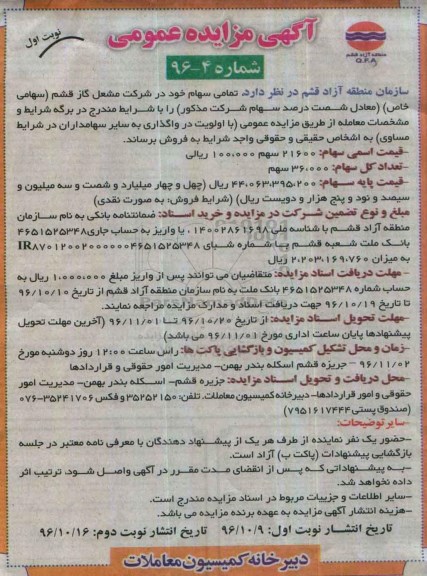 نوبت اول
آگهی مزایده عمومی
منطقه آزاد قشم
Q.F.A
شماره ۴-۹۶
سازمان منطقه آزاد قشم در نظر دارد، تمامی سهام خود در شرکت مشعل گاز قشم (سهامی
خاص) (معادل شصت درصد سهام شرکت مذکور) را با شرایط مندرج در برگه شرایط و
مشخصات معامله از طریق مزایده عمومی (با اولویت در واگذاری به سایر سهامداران در شرایط
مساوی) به اشخاص حقیقی و حقوقی واجد شرایط به فروش برساند.
-قیمت اسمی سهام: ۲۱۶۰۰ سهم ۱۰۰،۰۰۰ ریالی
-تعداد کل سهام: ۳۶،۰۰۰ سهم
-قیمت پایه سهام: ۴۴،۰۶۳،۳۹۵،۲۰۰ ریال (چهل و چهار میلیارد و شصت و سه میلیون و
سیصد و نود و پنج هزار و دویست ریال) (شرایط فروش: به صورت نقدی)
مبلغ و نوع تضمین شرکت در مزایده و خرید اسناد: ضمانتنامه بانکی به نام سازمان
منطقه آزاد قشم با شناسه ملی ۱۴۰۰۲۸۶۱۶۹۸ ، یا واریز به حساب جاری ۴۶۵۱۵۲۵۳۴۸
بانک ملت شعبه قشم یا شماره شبای IR۸۷۰۱۲۰۰۲۰۰۰۰۰۰۴۶۵۱۵۲۵۳۴۸
به میزان ۲،۲۰۳،۱۶۹،۷۶۰ ریال
-مهلت دریافت اسناد مزایده: متقاضیان می توانند پس از واریز مبلغ ۱،۰۰۰،۰۰۰ ریال به
حساب شماره ۴۶۵۱۵۲۵۳۴۸ بانک ملت به نام سازمان منطقه آزاد قشم از تاریخ ۹۶/۱۰/۱۰
تا تاریخ ۹۶/۱۰/۱۹ جهت دریافت اسناد و مدارک مزایده مراجعه نمایند.
-مهلت تحویل اسناد مزایده: از تاریخ ۹۶/۱۰/۲۰ تا ۹۶/۱۱/۰۱ (آخرین مهلت تحویل
پیشنهادها پایان ساعت اداری مورخ ۹۶/۱۱/۰۱ می باشد)
-زمان و محل تشکیل کمیسیون و بازگشایی پاکت ها: راس ساعت ۱۲:۰۰ روز دوشنبه مورخ
۹۶/۱۱/۰۲ - جزیره قشم اسکله بندر بهمن- مدیریت امور حقوقی و قراردادها
-محل دریافت و تحویل اسناد مزایده: جزیره قشم- اسکله بندر بهمن- مدیریت امور
حقوقی و امور قراردادها- دبیرخانه کمیسیون معاملات. تلفن: ۳۵۲۵۲۱۵۰ و فکس ۳۵۲۴۱۷۰۶-۰۷۶
(صندوق پستی ۷۹۵۱۶۱۷۴۴۴)
-سایر توضیحات:
-حضور یک نفر نماینده از طرف هر یک از پیشنهاد دهندگان با معرفی نامه معتبر در جلسه
بازگشایی پیشنهادات (پاکت ب) آزاد است.
-به پیشنهاداتی که پس از انقضای مدت مقرر در آگهی واصل شود، ترتیب اثر
داده نخواهد شد.
-سایر اطلاعات و جزییات مربوط در اسناد مزایده مندرج است.
-هزینه انتشار آگهی مزایده به عهده برنده مزایده می باشد.
تاریخ انتشار نوبت اول: ۹۶/۱۰/۹ تاریخ انتشار نوبت دوم: ۹۶/۱۰/۱۶
دبیرخانه کمیسیون معاملات